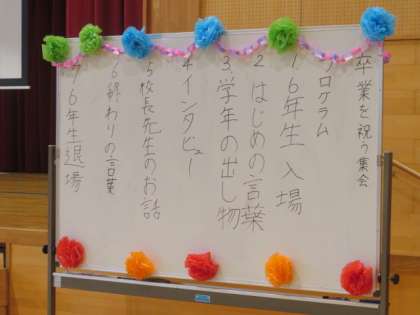 卒業を祝う集会
プログラム
1 6年生 入場
2 はじめの言葉
3 学年の出し物
4 インタビュー
5 校長先生のお話
6 終わりの言葉
7 6年生退場